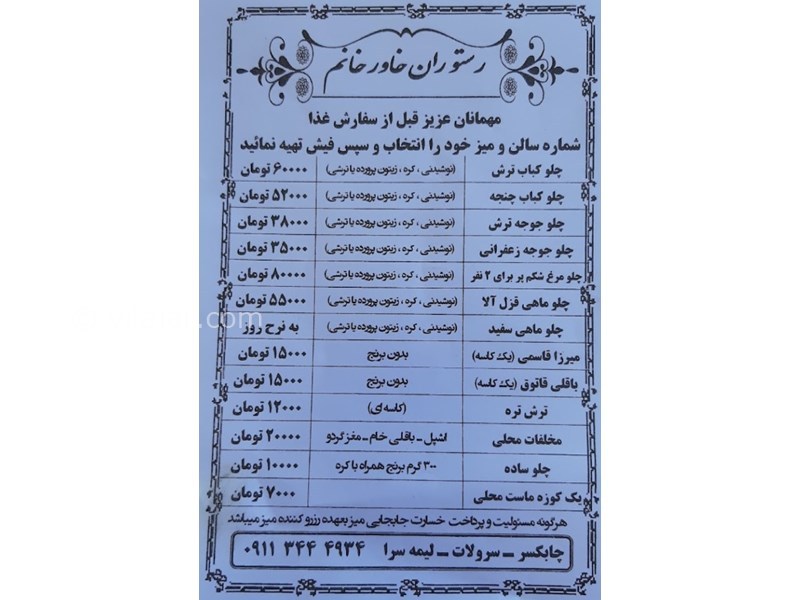 رستوران خاور خانم
مهمانان عزیز قبل از سفارش غذا
شماره سالن و میز خود را انتخاب و سپس فیش تهیه نمائید
چلو کباب ترش (نوشیدنی ، کره ، زیتون پرورده یا ترشی) ۶۰۰۰۰ تومان
چلو کباب چنجه (نوشیدنی ، کره ، زیتون پرورده یا ترشی) ۵۲۰۰۰ تومان
چلو جوجه ترش (نوشیدنی ، کره ، زیتون پرورده یا ترشی) ۳۸۰۰۰ تومان
چلو جوجه زعفرانی (نوشیدنی ، کره ، زیتون پرورده یا ترشی) ۳۵۰۰۰ تومان
چلو مرغ شکم پر برای ۲ نفر (نوشیدنی ، کره ، زیتون پرورده یا ترشی) ۸۰۰۰۰ تومان
چلو ماهی قزل آلا (نوشیدنی ، کره ، زیتون پرورده یا ترشی) ۵۵۰۰۰ تومان
چلو ماهی سفید (نوشیدنی ، کره ، زیتون پرورده یا ترشی) به نرح روز
میرزا قاسمی (یک کاسه) بدون برنج ۱۵۰۰۰ تومان
باقلی قاتوق (یک کاسه) بدون برنج ۱۵۰۰۰ تومان
ترش تره (کاسه ای) ۱۲۰۰۰ تومان
مخلفات محلی اشپل – باقلی خام – مغز گردو ۲۰۰۰۰ تومان
چلو ساده ۳۰۰ گرم برنج همراه با کره ۱۰۰۰۰ تومان
یک کوزه ماست محلی ۷۰۰۰ تومان
هرگونه مسئولیت و پرداخت خسارت جابجایی میز بعهده رزرو کننده میز میباشد
چابکسر – سرولات – لیمه سرا ۰۹۱۱ ۳۴۴ ۴۹۳۴